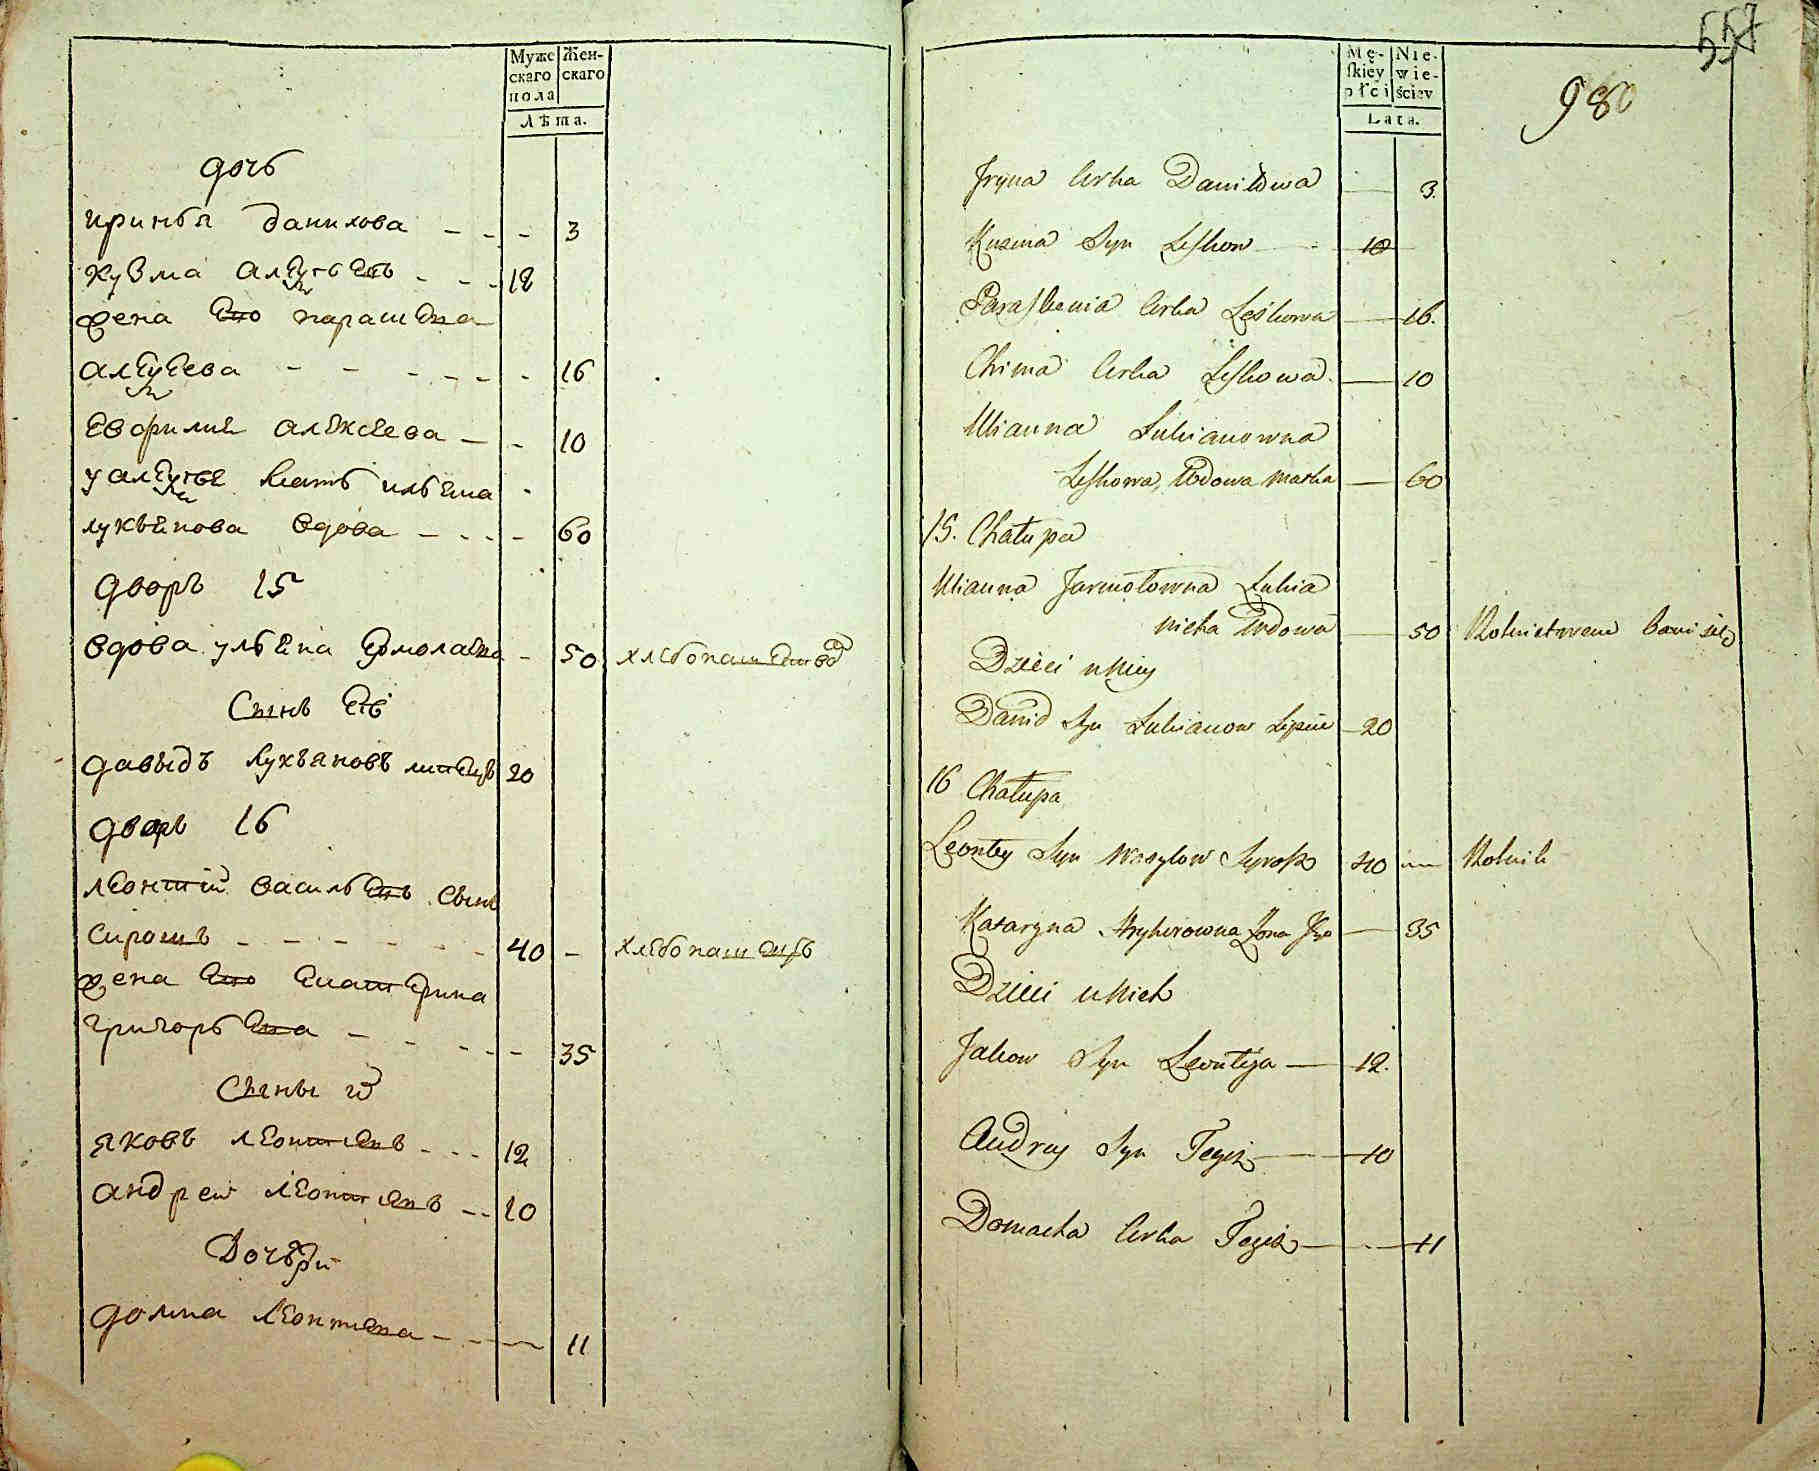 Муже
скаго
пола
Жен-
скаго
Лѣта.
дочь
ирина данилова - - - 3
кузма алѣѯѣевъ - - - 18
жена его парашѣва
алѣѯѣева - - - - - - 16
алексеева - - 10
у алѣѯѣя мать
лукьянова вдова - - - - 60
дворъ 15
вдова ульяна - 50
Сынъ ея
давыдъ лукъяновъ 20
дворъ 16
леонтий васильевъ сынъ
- - - - - - - 40 - хлебопашецъ
жена его екатерина
григорьева - - - - - 35
Сыны их
яковъ леонтиевъ - - - 12
андрей леонтиевъ - - 10
Дочери
домна леонтиева - - - 11
557
980
Mę-
skiey
płci
Nie-
wie-
ściey
Lata.
Jryna Crka Daniłowa — 3.
Kuzma Syn Leskow — 18
Paraskewia Crka Leskowa — 16.
Chima Crka Leskowa. — 10
Ulianna Lukianowna
Leskowa, Wdowa matka — 60
15. Chałupa
Ulianna Jarmołowna Lukia
nicha Wdowa — 50 Rolnictwem bawi się
Dzieci u Niey
Dawid Syn Lukianow — 20
16 Chałupa
Leontey Syn Wasylow 40 — Rolnik
Kataryna Hryhorowna Żona Jego — 35
Dzieci u Nich
Jakow Syn Leontija — 12.
Andrey Syn Tegoż — 10
Domacha Crka Tegoż — 11